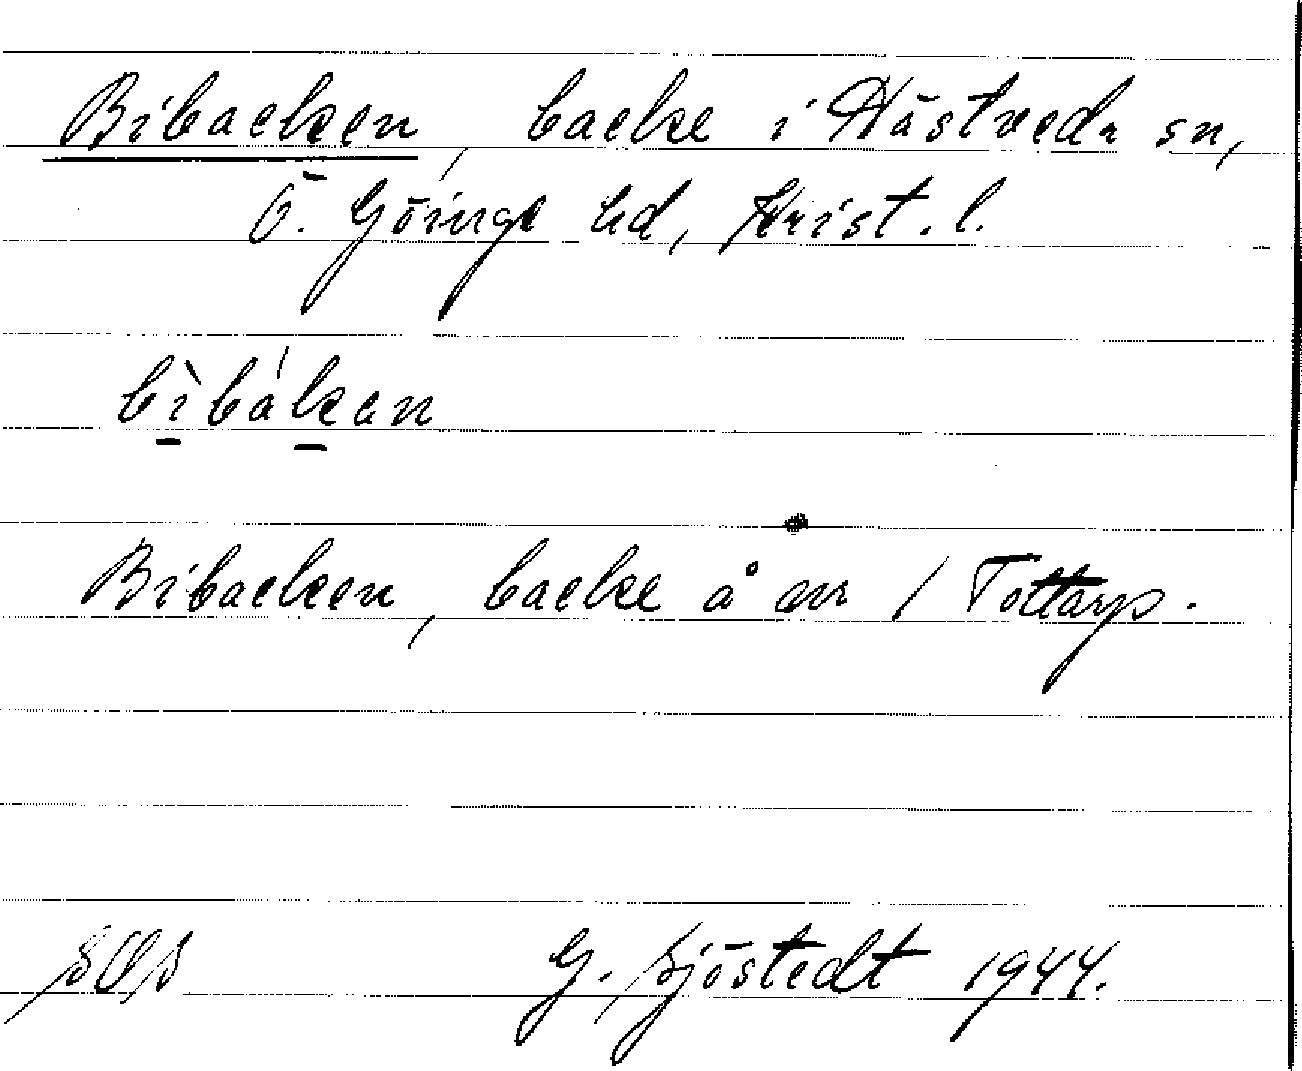 Bibacken, backe i Hästveda sn,
Ö. Göinge hd, Krist. l.
bìbákan
Bibacken, backe å nr 1 Tottarp.
G. Sjöstedt 1944.